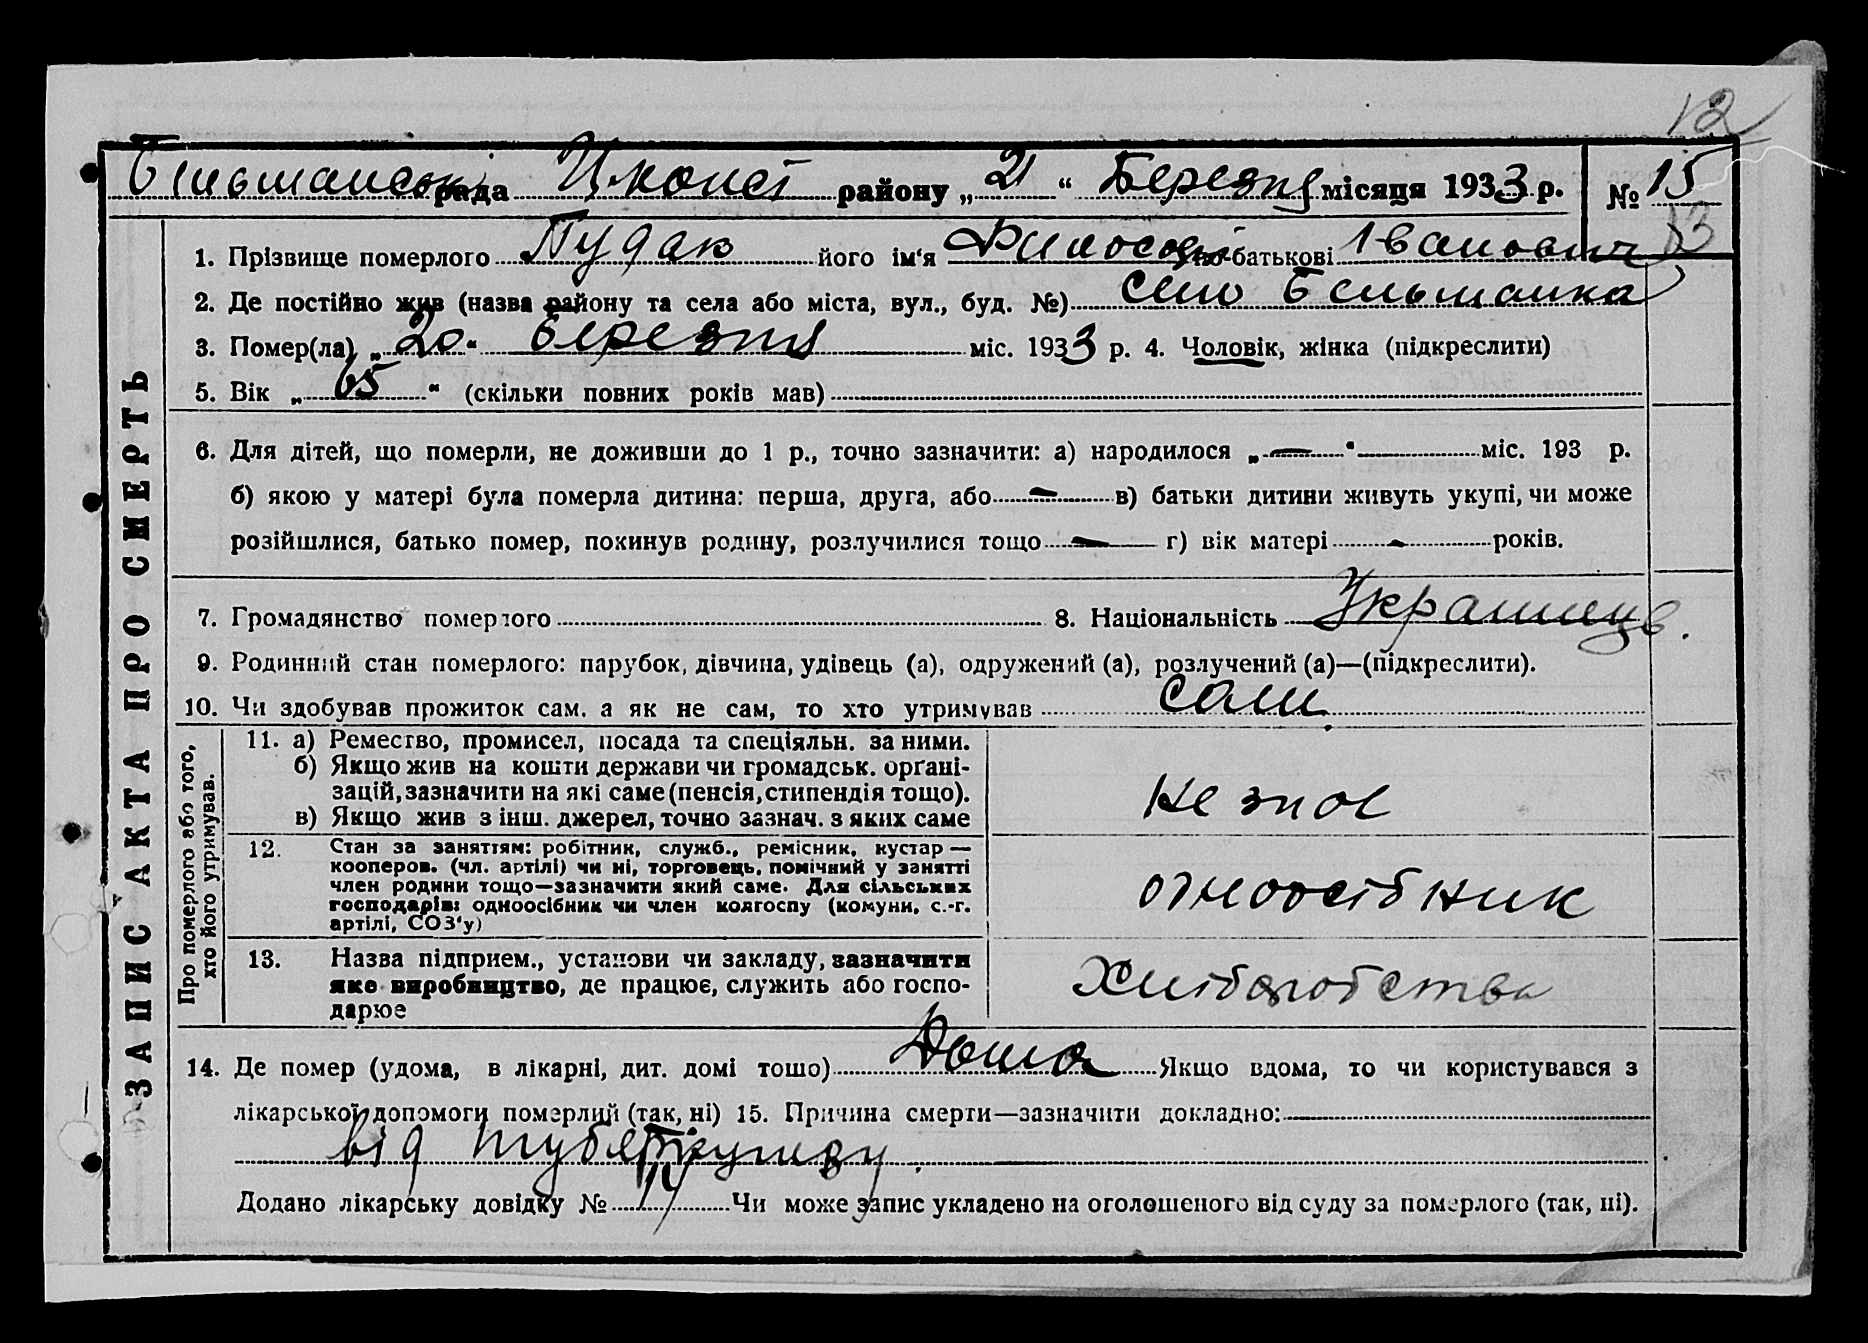 12
Більшанська рада району „21“ Березня місяця 1933 р. № 15
13
1. Прізвище померлого Пудак його ім'я по-батькові Іванович
2. Де постійно жив (назва району та села або міста, вул., буд. №) село Більшанка
3. Помер(ла) „20“ Березня міс. 1933 р. 4. Чоловік, жінка (підкреслити)
5. Вік „65“ (скільки повних років мав)
6. Для дітей, що померли, не доживши до 1 р., точно зазначити: а) народилося „—“ міс. 193 р.
б) якою у матері була померла дитина: перша, друга, або — в) батьки дитини живуть укупі, чи може
розійшлися, батько помер, покинув родину, розлучилися тощо — г) вік матері - років.
7. Громадянство померлого 8. Національність Українець.
9. Родинний стан померлого: парубок, дівчина, удівець (а), одружений (а), розлучений (а)—(підкреслити).
10. Чи здобував прожиток сам, а як не сам, то хто утримував сам.
ЗАПИС АКТА ПРО СМЕРТЬ
Про померлого або того,
хто його утримував.
11. а) Ремество, промисел, посада та спеціяльн. за ними.
б) Якщо жив на кошти держави чи громадськ. орґані-
зацій, зазначити на які саме (пенсія, стипендія тощо).
в) Якщо жив з інш. джерел, точно зазнач. з яких саме
не знає
12. Стан за заняттям: робітник, служб., ремісник, кустар —
кооперов. (чл. артілі) чи ні, торговець, помічний у занятті
член родини тощо—зазначити який саме. Для сільських
господарів: одноосібник чи член колгоспу (комуни, с.-г.
артілі, СОЗ'у)
одноосібник
13. Назва підприєм., установи чи закладу, зазначити
яке виробництво, де працює, служить або госпо-
дарює
Хліборобства
14. Де помер (удома, в лікарні, дит. домі тощо) Дома Якщо вдома, то чи користувався з
лікарської допомоги померлий (так, ні) 15. Причина смерти—зазначити докладно:
від
Додано лікарську довідку № 14 Чи може запис укладено на оголошеного від суду за померлого (так, ні).